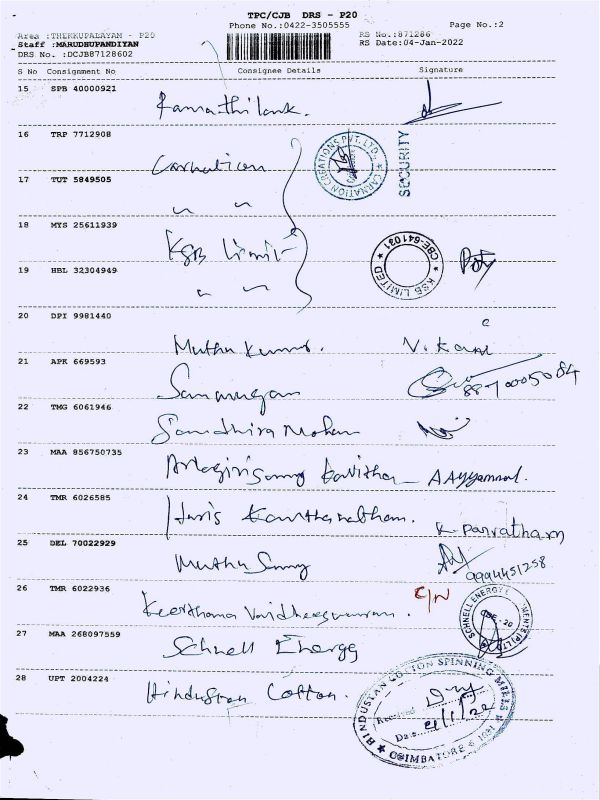 TPC/CJB DRS - P20
Phone No.:0422-3505555
Page No.:2
Area :THEKKUPALAYAM - P20
RS No.:871286
Staff :MARUDHUPANDIYAN
RS Date:04-Jan-2022
DRS No. :DCJB87128602
S No Consignment No Consignee Details Signature
15 SPB 40000921
Ramathilak.
16 TRP 7712908
Carnation
CARNATION CREATIONS PVT. LTD.
SECURITY
17 TUT 5849505
18 MYS 25611939
KSB Limit
KSB LIMITED CBE-641031
19 HBL 32304949
20 DPI 9981440
Muthu Kumar. V. Kani
21 APK 669593
Sanmugan
22 TMG 6061946
Sandhira Mohan
23 MAA 856750735
Kavitha A Ayyammal.
24 TMR 6026585
Haris K. Parvatham
25 DEL 70022929
Muthu Samy 9994451258
26 TMR 6022936
Keerthana C/N
SCHNELL ENERGY
27 MAA 268097559
Schnell Energy
28 UPT 2004224
Hindustan Cotton.
HINDUSTAN COTTON SPINNING MILLS
Received
Date 4/1/22
COIMBATORE